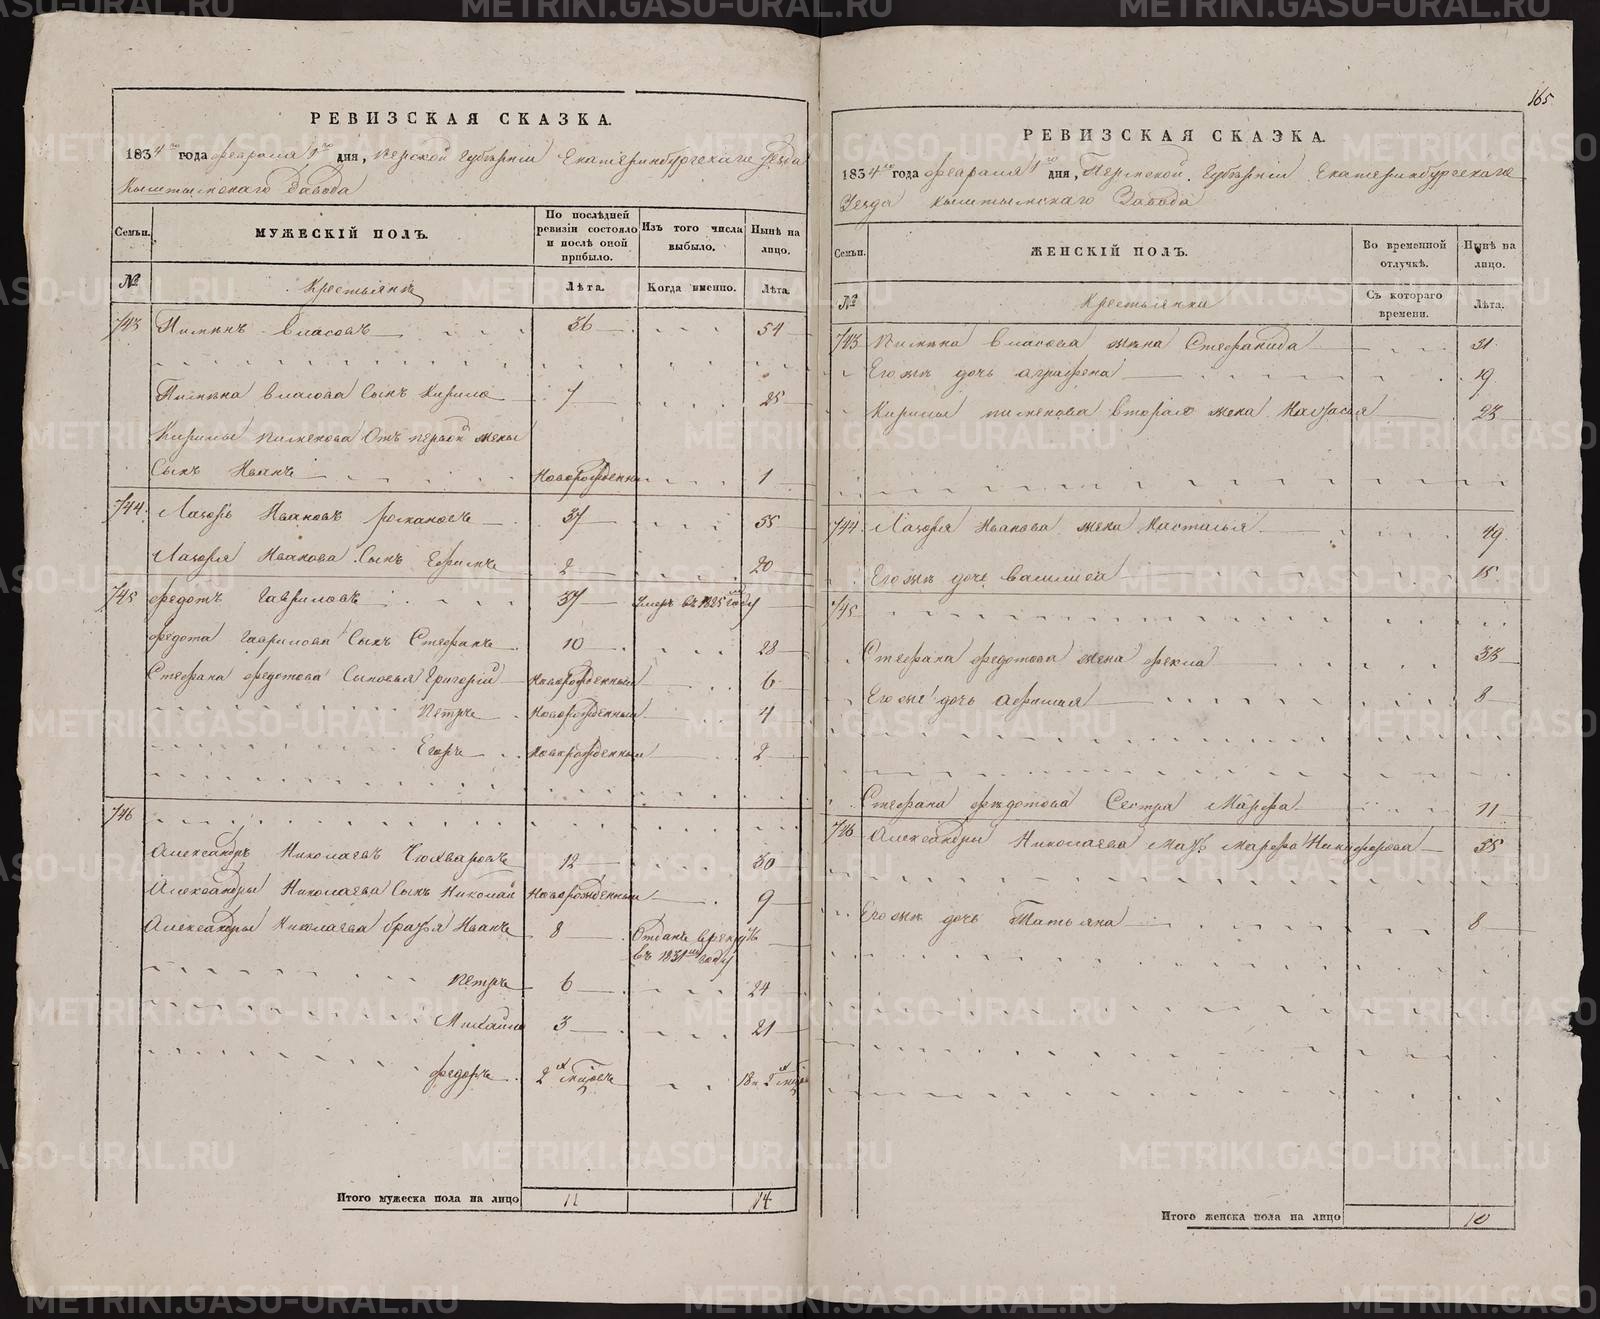 165
РЕВИЗСКАЯ СКАЗКА.
1834го года февраля 1го дня, Пермской Губернiи Екатеринбургскаго Уезда
Кыштымскаго Завода
Семьи.
МУЖЕСКIЙ ПОЛЪ.
По послѣдней ревизiи состояло и послѣ оной прибыло.
Изъ того числа выбыло.
Нынѣ на лицо.
№
Крестьянъ
Лѣта.
Когда именно.
Лѣта.
743 Пименъ Власовъ 36 54
Пимена Власова Сынъ Кирило 7 25
Кирилы Пименова Отъ первой жены
Сынъ Иванъ Новорожденны 1
744 Лазорь Ивановъ Романовъ 37 55
Лазоря Иванова Сынъ Ефимъ 2 20
745 Федотъ Гавриловъ 37 умеръ въ 1825 году
Федота Гаврилова Сынъ Стефанъ 10 28
Стефана Федотова Сыновья Григорiй Новорожденный 6
Петръ Новорожденный 4
Егоръ Новорожденный 2
746
Александръ Николаевъ 12 30
Александры Николаева Сынъ Николай Новорожденный 9
Александры Николаева братья Иванъ 8 Отданъ в рекруты
въ 1831м году
Петръ 6 24
Михайло 3 21
Федоръ 2х 18 и 2х
Итого мужеска пола на лицо 11 14
РЕВИЗСКАЯ СКАЗКА.
1834го года февраля 1го дня, Пермской Губернiи Екатеринбургскаго
Уезда Кыштымскаго Завода
Семьи.
ЖЕНСКIЙ ПОЛЪ.
Во временной отлучкѣ.
Нынѣ на лицо.
№
Крестьянки
Съ котораго времени.
Лѣта.
743 Пимена Власова жена Стефанида 51
Его же дочь Аграфена 19
Кирилы Пименова вторая жена Настасья 23
744 Лазоря Иванова жена Настасья 49
Его же дочь Василиса 15
745
Стефана Федотова жена Фекла 33
Его же дочь Афимья 8
Стефана Федотова Сестра Марфа 11
746 Александры Николаева мать Марфа Никифорова 55
Его же дочь Татьяна 8
Итого женска пола на лицо 10
METRIKI.GASO-URAL.RU